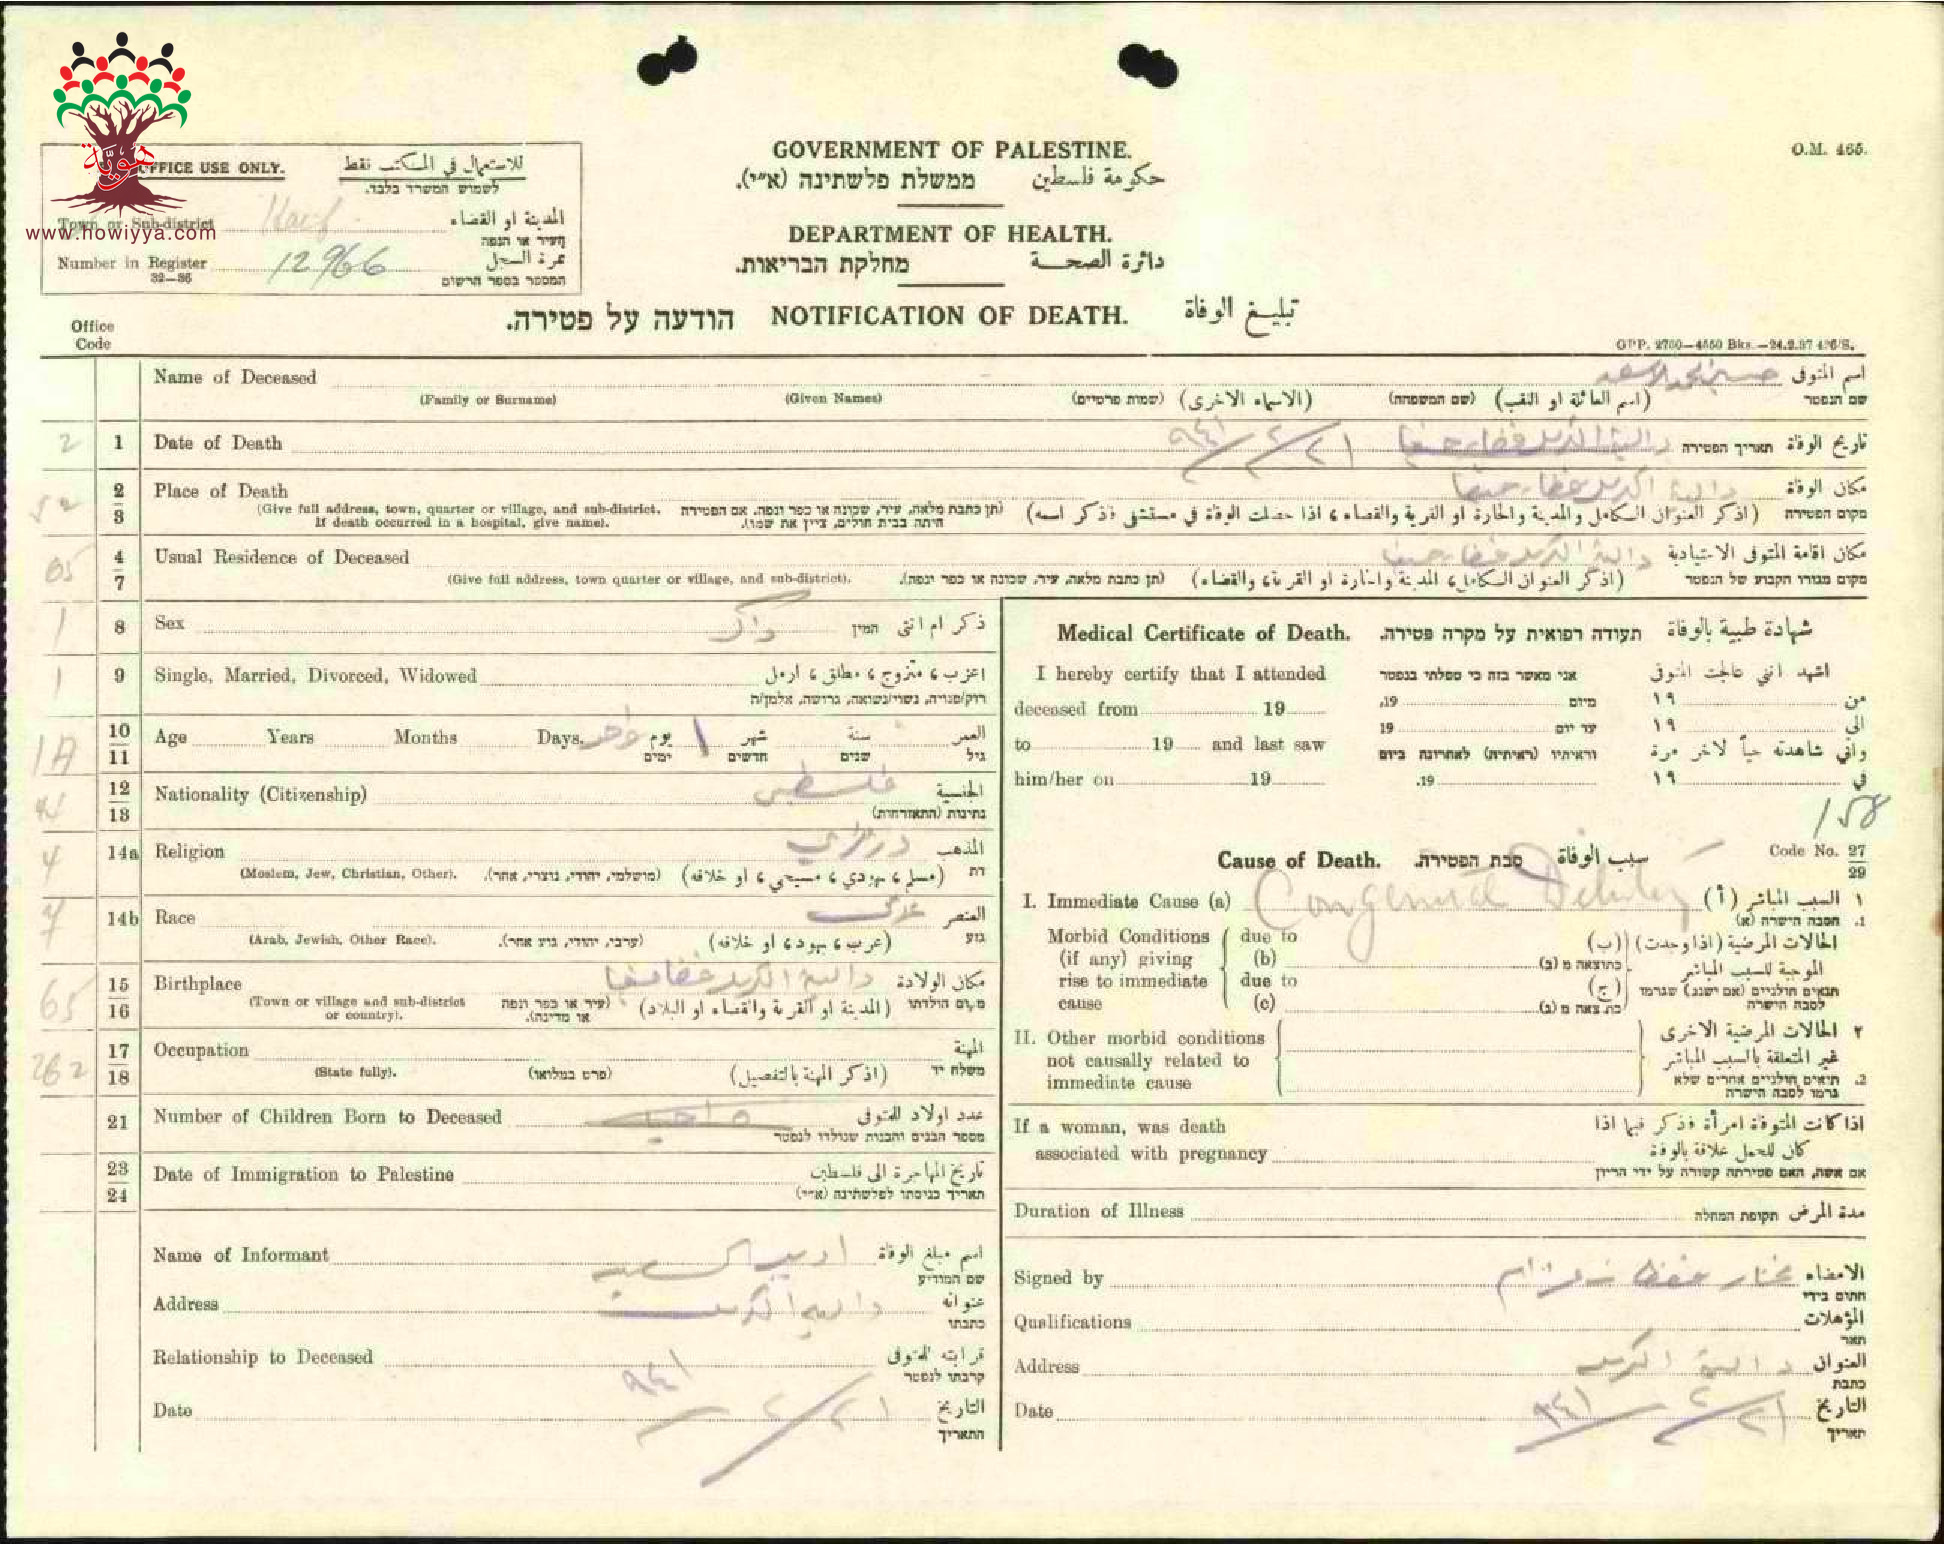 هوية
www.howiyya.com
OFFICE USE ONLY. للاستعمال في المكتب فقط
לשמוש המשרד בלבד.
Town or Sub-district المدينة او القضاء
העיר או הנפה
Number in Register 12966 نمرة السجل
32—36 המספר בספר הרשום
GOVERNMENT OF PALESTINE.
ממשלת פלשתינה (א״י). حكومة فلسطين
DEPARTMENT OF HEALTH.
מחלקת הבריאות. دائرة الصحة
O.M. 465.
הודעה על פטירה. NOTIFICATION OF DEATH. تبليغ الوفاة
Office Code
Name of Deceased اسم المتوفى
(Family or Surname) (Given Names) (שמות פרטיים) (الاسماء الاخرى) (שם המשפחה) (اسم العائلة او اللقب) שם הנפטר
2 1 Date of Death ٢١/٢/٩٤١ دالية الكرمل قضاء حيفا תאריך הפטירה تاريخ الوفاة
52 2 3 Place of Death دالية الكرمل قضاء حيفا مكان الوفاة
(Give full address, town, quarter or village, and sub-district. (תן כתבת מלאה, עיר, שכונה או כפר ונפה. אם הפטירה (اذكر العنوان الكامل والمدينة والحارة او القرية والقضاء، اذا حصلت الوفاة في مستشفى فذكر اسمه) מקום הפטירה
If death occurred in a hospital, give name). היתה בבית חולים, ציין את שמו).
65 4 7 Usual Residence of Deceased دالية الكرمل قضاء حيفا مكان اقامة المتوفى الاعتيادية
(Give full address, town quarter or village, and sub-district). (תן כתבת מלאה, עיר, שכונה או כפר ונפה). (اذكر العنوان الكامل، المدينة والحارة او القرية، والقضاء) מקום מגורו הקבוע של הנפטר
1 8 Sex המין ذكر ام انثى
1 9 Single, Married, Divorced, Widowed اعزب، متزوج، مطلق، ارمل
רוק/פנויה, נשוי/נשואה, גרושה, אלמן/ה
10 11 Age Years Months Days. واحد يوم ١ شهر سنة العمر
ימים חדשים שנים גיל
12 13 Nationality (Citizenship) فلسطيني الجنسية
נתינות (התאזרחות)
4 14a Religion درزي المذهب
(Moslem, Jew, Christian, Other). (מושלמי, יהודי, נוצרי, אחר). (مسلم، يهودي، مسيحي، او خلافه) דת
7 14b Race العنصر
(Arab, Jewish, Other Race). (ערבי, יהודי, גזע אחר). (عرب، يهود، او خلافه) גזע
65 15 16 Birthplace دالية الكرمل قضاء حيفا مكان الولادة
(Town or village and sub-district or country). (עיר או כפר ונפה או מדינה). (المدينة او القرية والقضاء او البلاد) מקום הולדתו
262 17 18 Occupation المهنة
(State fully). (פרט במלואו) (اذكر المهنة بالتفصيل) משלח יד
21 Number of Children Born to Deceased عدد اولاد المتوفى
מספר הבנים והבנות שנולדו לנפטר
23 24 Date of Immigration to Palestine تاريخ المهاجرة الى فلسطين
תאריך כניסתו לפלשתינה (א״י)
Name of Informant اسم مبلغ الوفاة
שם המודיע
Address دالية الكرمل عنوانه
כתבתו
Relationship to Deceased قرابته للمتوفى
קרבתו לנפטר
Date ٢١/٢/٩٤١ التاريخ
התאריך
Medical Certificate of Death. תעודה רפואית על מקרה פטירה. شهادة طبية بالوفاة
I hereby certify that I attended אני מאשר בזה כי טפלתי בנפטר اشهد انني عالجت المتوفى
deceased from 19 19, מיום ١٩ من
to 19 and last saw 19 עד יום ١٩ الى
וראיתיו (ראיתיה) לאחרונה ביום واني شاهدته حياً لاخر مرة
him/her on 19 19. ١٩ في
158
Cause of Death. סבת הפטירה. سبب الوفاة Code No. 27 29
I. Immediate Cause (a) Congenital Debility (أ) السبب المباشر ١
הסבה הישרה (א) .1
Morbid Conditions due to (ب) الحالات المرضية (اذا وجدت)
(if any) giving (b) כתוצאה מ (ב) الموجبة للسبب المباشر
rise to immediate due to (ج) תנאים חולניים (אם ישנם) שגרמו
cause (c) כתוצאה מ (ג) לסבה הישרה
II. Other morbid conditions الحالات المرضية الاخرى ٢
not causally related to غير المتعلقة بالسبب المباشر
immediate cause תנאים חולניים אחרים שלא .2
גרמו לסבה הישרה
If a woman, was death اذا كانت المتوفاة امرأة فذكر فيما اذا
associated with pregnancy كان للحمل علاقة بالوفاة
אם אשה, האם פטירתה קשורה על ידי הריון
Duration of Illness תקופת המחלה مدة المرض
Signed by مختار الامضاء
חתום בידי
Qualifications المؤهلات
תאר
Address دالية الكرمل العنوان
כתבת
Date ٢١/٢/٩٤١ التاريخ
תאריך